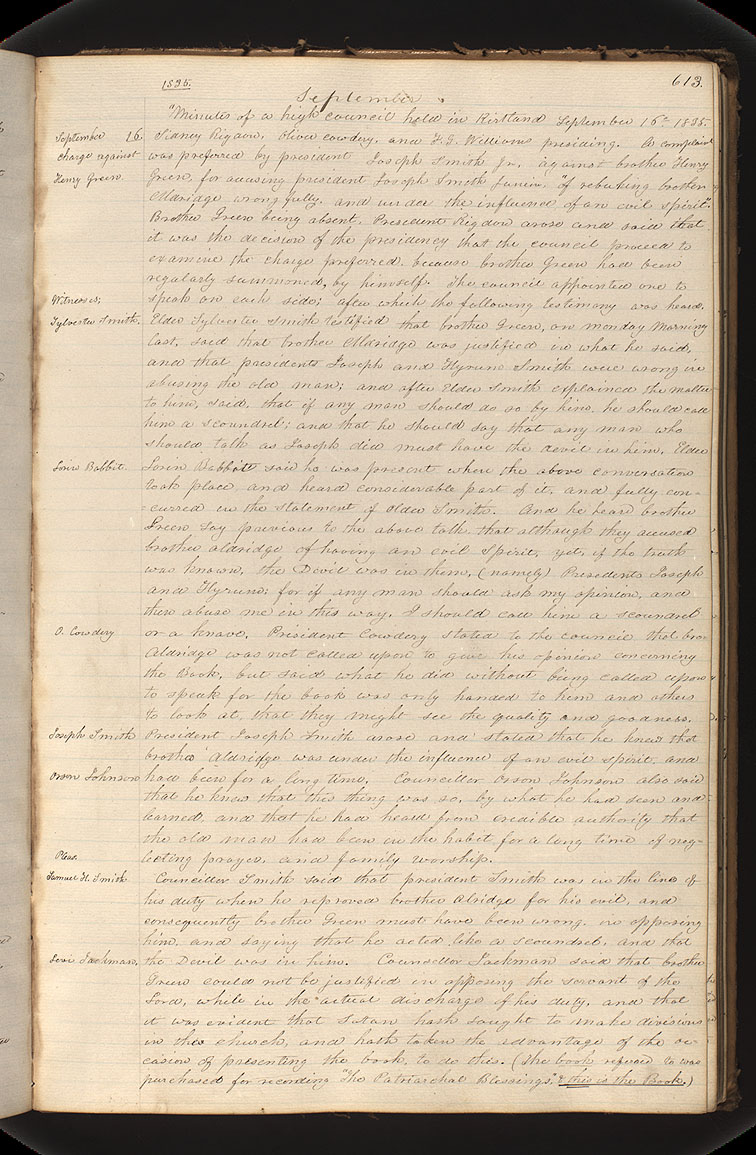 1835.
613.
September
"Minutes of a high council held in Kirtland September 16th 1835.
September 16.
charge against
Henry Green.
Sidney Rigdon, Oliver Cowdery, and F. G. Williams presiding. A complaint
was preferred by president Joseph Smith Jr. against brother Henry
Green, for accusing president Joseph Smith Junior, "of rebuking brother
Aldridge wrongfully, and under the influence of an evil spirit".
Brother Green being absent, President Rigdon arose and said that
it was the decision of the presidency that the council proceed to
examine the charge preferred, because brother Green had been
regularly summoned, by himself. The council appointed one to
speak on each side; after which the following testimony was heard.
Witnesses;
Sylvester Smith.
Elder Sylvester Smith testified that brother Green, on monday Morning
last, said that brother Aldridge was justified in what he said,
and that presidents Joseph and Hyrum Smith were wrong in
abusing the old man; and after Elder Smith explained the matter
to him, said, that if any man should do so by him, he should call
him a scoundrel; and that he should say that any man who
should talk as Joseph did must have the devil in him. Elder
Lorin Babbit.
Lorin Babbitt said he was present when the above conversation
took place and heard considerable part of it, and fully con-
curred in the statement of elder Smith. And he heard brother
Green say previous to the above talk, that although they accused
brother aldridge of having an evil spirit, yet, if the truth
was known, the Devil was in them, (namely) Presidents Joseph
and Hyrum; for if any man should ask my opinion, and
then abuse me in this way, I should call him a scoundrel
O. Cowdery
or a knave. President Cowdery stated to the council that bro.
Aldridge was not called upon to give his opinion concerning
the Book, but said what he did without being called upon
to speak for the book was only handed to him and others
to look at, that they might see the quality and goodness.
Joseph Smith
President Joseph Smith arose and stated that he knew that
brother Aldridge was under the influence of an evil spirit, and
Orson Johnson
had been for a long time. Councillor Orson Johnson also said
that he knew that this thing was so, by what he had seen and
learned, and that he had heard from credible authority that
the old man had been in the habit for a long time of neg-
lecting prayer, and family worship.
Pleas.
Samuel H. Smith
Councillor Smith said that president Smith was in the line of
his duty when he reproved brother Alridge for his evil, and
consequently brother Green must have been wrong, in opposing
him, and saying that he acted like a scoundrel, and that
Levi Jackman,
the Devil was in him. Counsellor Jackman said that brother
Green could not be justified in opposing the servant of the
Lord, while in the actual discharge of his duty, and that
it was evident that Satan hath sought to make divisions
in this church, and hath taken the advantage of the oc-
casion of presenting the book, to do this. (the book refered to was
purchased for recording "The Patriarchal Blessings." & this is the Book.)